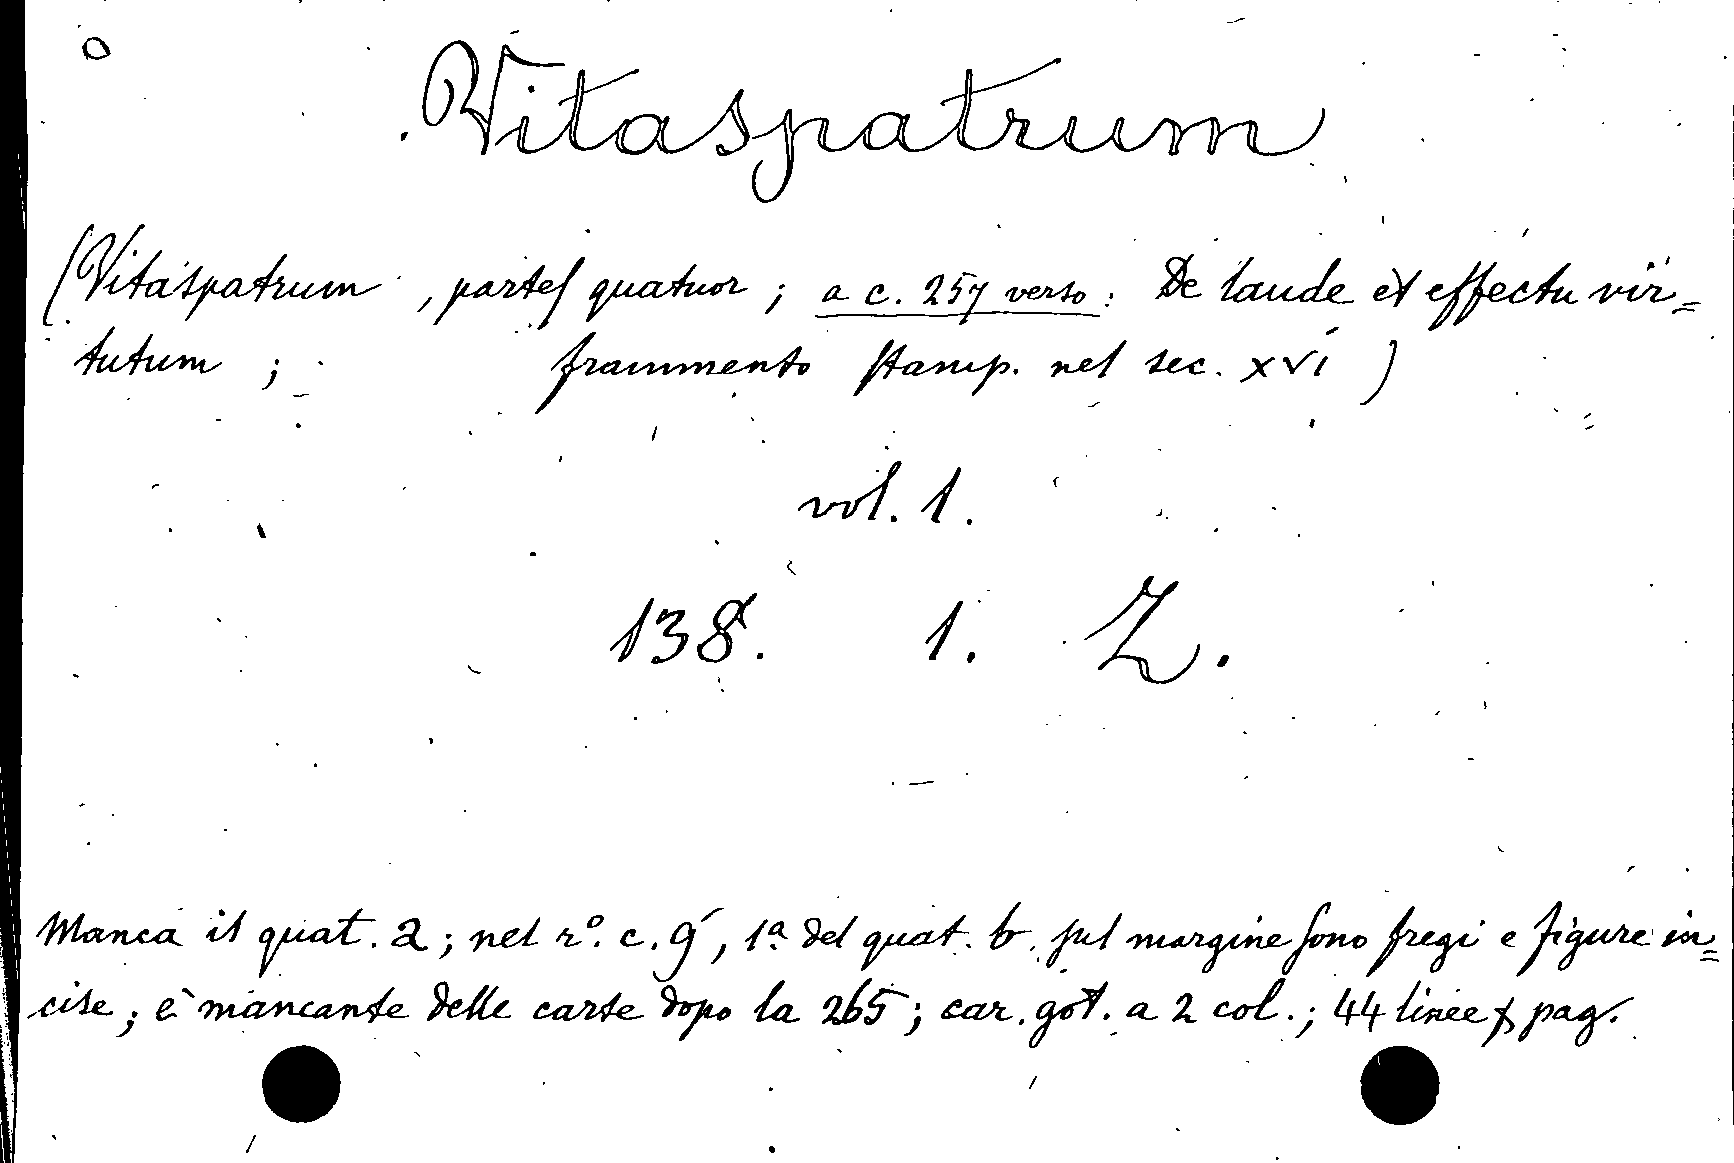 Vitaspatrum
(Vitaspatrum , partes quatuor ; a c. 257 verso : De laude et effectu vir=
tutum ; frammento stamp. nel sec. XVI )
vol. 1.
138. 1. Z.
Manca il quat. a ; nel rº. c. 9, 1ª del quat. b. sul margine sono fregi e figure in=
cise ; è mancante delle carte dopo la 265 ; car. got. a 2 col. ; 44 linee pag.